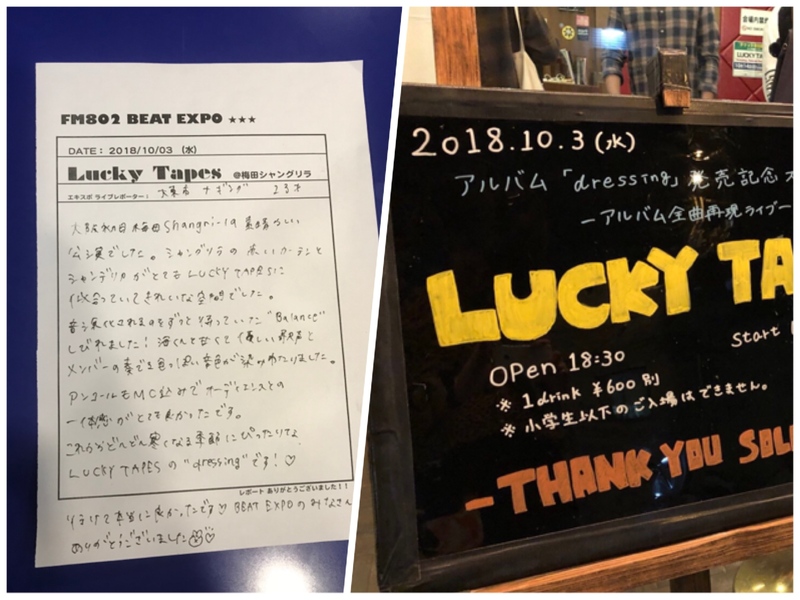 FM802 BEAT EXPO ★★★
DATE： 2018/10/03 （水）
Lucky Tapes @梅田シャングリラ
エキスポ ライブレポーター： 大東市 23才
大阪初日梅田Shangri-la素晴らしい
公演でした。シャングリラの黒いカーテンと
シャンデリアがとてもLUCKY TAPESに
似合っていてきれいな空間でした。
音源化されるのをずっと待っていた"Balance"
しびれました！海くんと甘くて優しい歌声と
メンバーの奏でる色っぽい音色が染みわたりました。
アンコールもMC込みでオーディエンスとの
一体感がとても良かったです。
これからどんどん寒くなる季節にぴったりな
LUCKY TAPESの"dressing"です！♡
レポートありがとうございました！！
行けて本当に良かったです♡ BEAT EXPOのみなさん
ありがとうございました♡
2018.10.3(水)
アルバム「dressing」発売記念
ーアルバム全曲再現ライブー
LUCKY TA
OPen 18:30
Start
※ 1drink ¥600 別
※ 小学生以下のご入場はできません。
-THANK YOU SOL